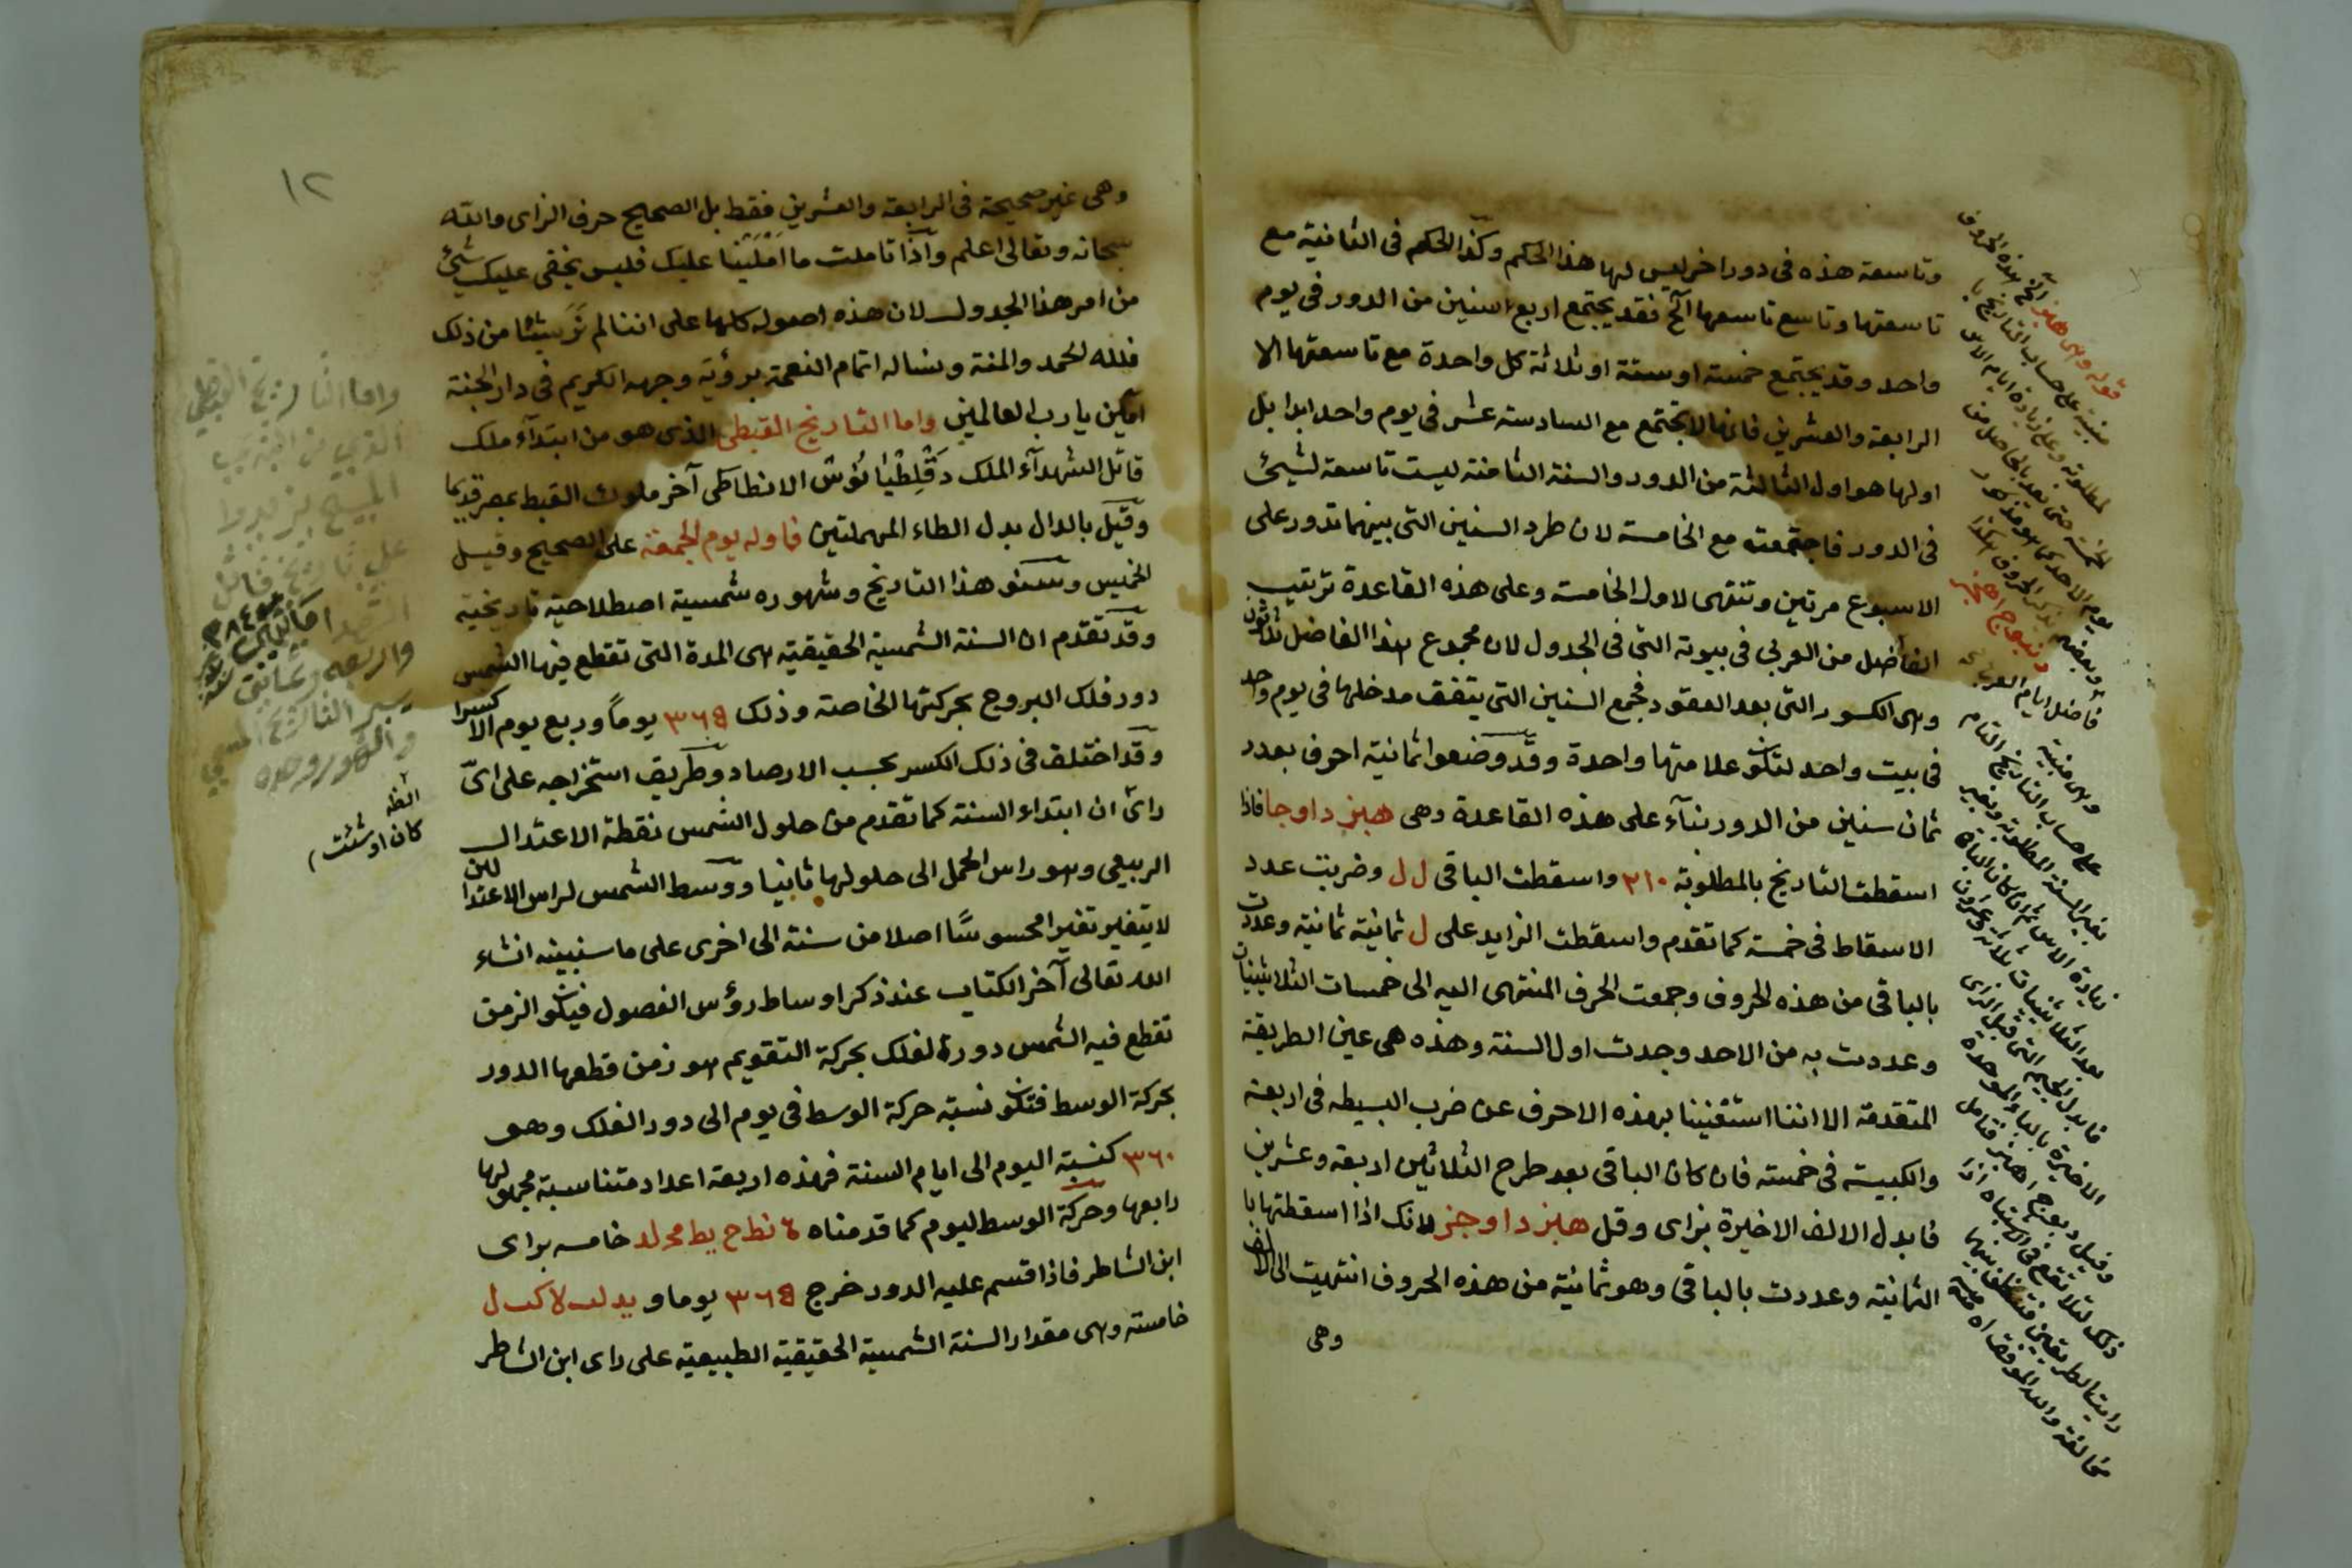 وتاسعة هذه في دور اخر ليس لها هذا الحكم وكذا الحكم في الثانية مع
تاسعتها وتاسع تاسعها الخ فقد يجتمع اربع سنين من الدور في يوم
واحد وقد يجتمع خمسة او ستة او ثلاثة كل واحدة مع تاسعتها الا
الرابعة والعشرين فانها لا تجتمع مع السادسة عشر في يوم واحد ابدا بل
اولها هو اول الثالثة من الدور والسنة الثامنة ليست تاسعة لشيئ
في الدور فاجتمعت مع الخامسة لان طرد السنين التي بينهما تدور على
الاسبوع مرتين وتنتهى لاول الخامسة وعلى هذه القاعدة ترتيب
الفاضل من العربي في بيوته التي في الجدول لان مجموع هذا الفاضل ثلاثون
وهى الكسور التي بعد العقود فجمع السنين التي يتفق مدخلها في يوم واحد
في بيت واحد لتكون علامتها واحدة وقد وضعوا ثمانية احرف بعدد
ثمان سنين من الدور بنآء على هذه القاعدة وهى هبز داوجا فاذا
اسقطت التاريخ بالمطلوبة ٢١٠ واسقطت الباقى ل ل وضربت عدد
الاسقاط في خمسة كما تقدم واسقطت الزايد على ل ثمانية ثمانية وعددت
بالباقى من هذه الحروف وجمعت الحرف المنتهى اليه الى خمسات الثلاثينيات
وعددت به من الاحد وجدت اول السنة وهذه هى عين الطريقة
المتقدمة الا اننا استغنينا بهذه الاحرف عن ضرب البسيطه في اربعة
والكبيسة في خمسة فان كان الباقى بعد طرح الثلاثين اربعة وعشرين
فابدل الالف الاخيرة بزاى وقل هبز داوجز لانك اذا اسقطتها با
الثمانية وعددت بالباقى وهو ثمانية من هذه الحروف انتهيت الى الالف
وهى
قوله وهى هبز الخ هذه الحروف
مبنية على حساب التاريخ با
لمطلوبة وعلى زيادة ايام الاس
يوم الاحد
فاضل ايام العربى
وهى مبنية
على حساب التاريخ التام
بغير السنة المطلوبة وبغير
زيادة الاس
بعد الثلاثينيات ثلاثة وعشرون
فابدل الجيم التي قبل الزاى
الاخيرة بالباء الموحدة
وقيل دبوج اهبز فتامل
ذلك لئلا تقع في اشتباه اذا
رايت الطريقين فتظن بينهما
مخالفة والله الموفق اه
١٢
وهى غير صحيحة في الرابعة والعشرين فقط بل الصحيح حرف الزاى والله
سبحانه وتعالى اعلم واذا تاملت ما امليتنا عليك فليس يخفى عليك شيئ
من امر هذا الجدول لان هذه اصوله كلها على اننا لم نر شيئا من ذلك
فلله الحمد والمنة ونساله اتمام النعمة برؤية وجهه الكريم في دار الجنة
امين يا رب العالمين واما التاريخ القبطى الذى هو من ابتدآء ملك
قاتل الشهدآء الملك دقلطيانوس الانطاكى آخر ملوك القبط بمصر قديما
وقيل بالدال بدل الطاء المهملتين فاوله يوم الجمعة على الصحيح وقيل
الخميس وسنو هذا التاريخ وشهوره شمسية اصطلاحية تاريخية
وقد تقدم ان السنة الشمسية الحقيقية هى المدة التي تقطع فيها الشمس
دور فلك البروج بحركتها الخاصة وذلك ٣٦٥ يوماً وربع يوم الا كسرا
وقد اختلف في ذلك الكسر بحسب الارصاد وطريق استخراجه على اىّ
راىٍ ان ابتداء السنة كما تقدم من حلول الشمس نقطة الاعتدال
الربيعى وهو راس الحمل الى حلولها ثانيا ووسط الشمس لراس الاعتدالين
لا يتغير تغيرا محسوسًا اصلا من سنة الى اخرى على ما سنبينه انشاء
الله تعالى آخر الكتاب عند ذكر اوساط رؤس الفصول فيكون الزمن
تقطع فيه الشمس دورة الفلك بحركة التقويم هو زمن قطعها الدور
بحركة الوسط فتكون نسبة حركة الوسط في يوم الى دور الفلك وهو
٣٦٠ كنسبة اليوم الى ايام السنة فهذه اربعة اعداد متناسبة مجهولها
رابعها وحركة الوسط ليوم كما قدمناه ة نط ح يط مح لد خامسه براى
ابن الشاطر فاذا قسم عليه الدور خرج ٣٦٥ يوما و يد لب لا كب ل
خامسة وهى مقدار السنة الشمسية الحقيقية الطبيعية على راى ابن الشاطر
واما التاريخ القبطى
المسيح
على تاريخ
التاريخ المسيحى
كان او شئت